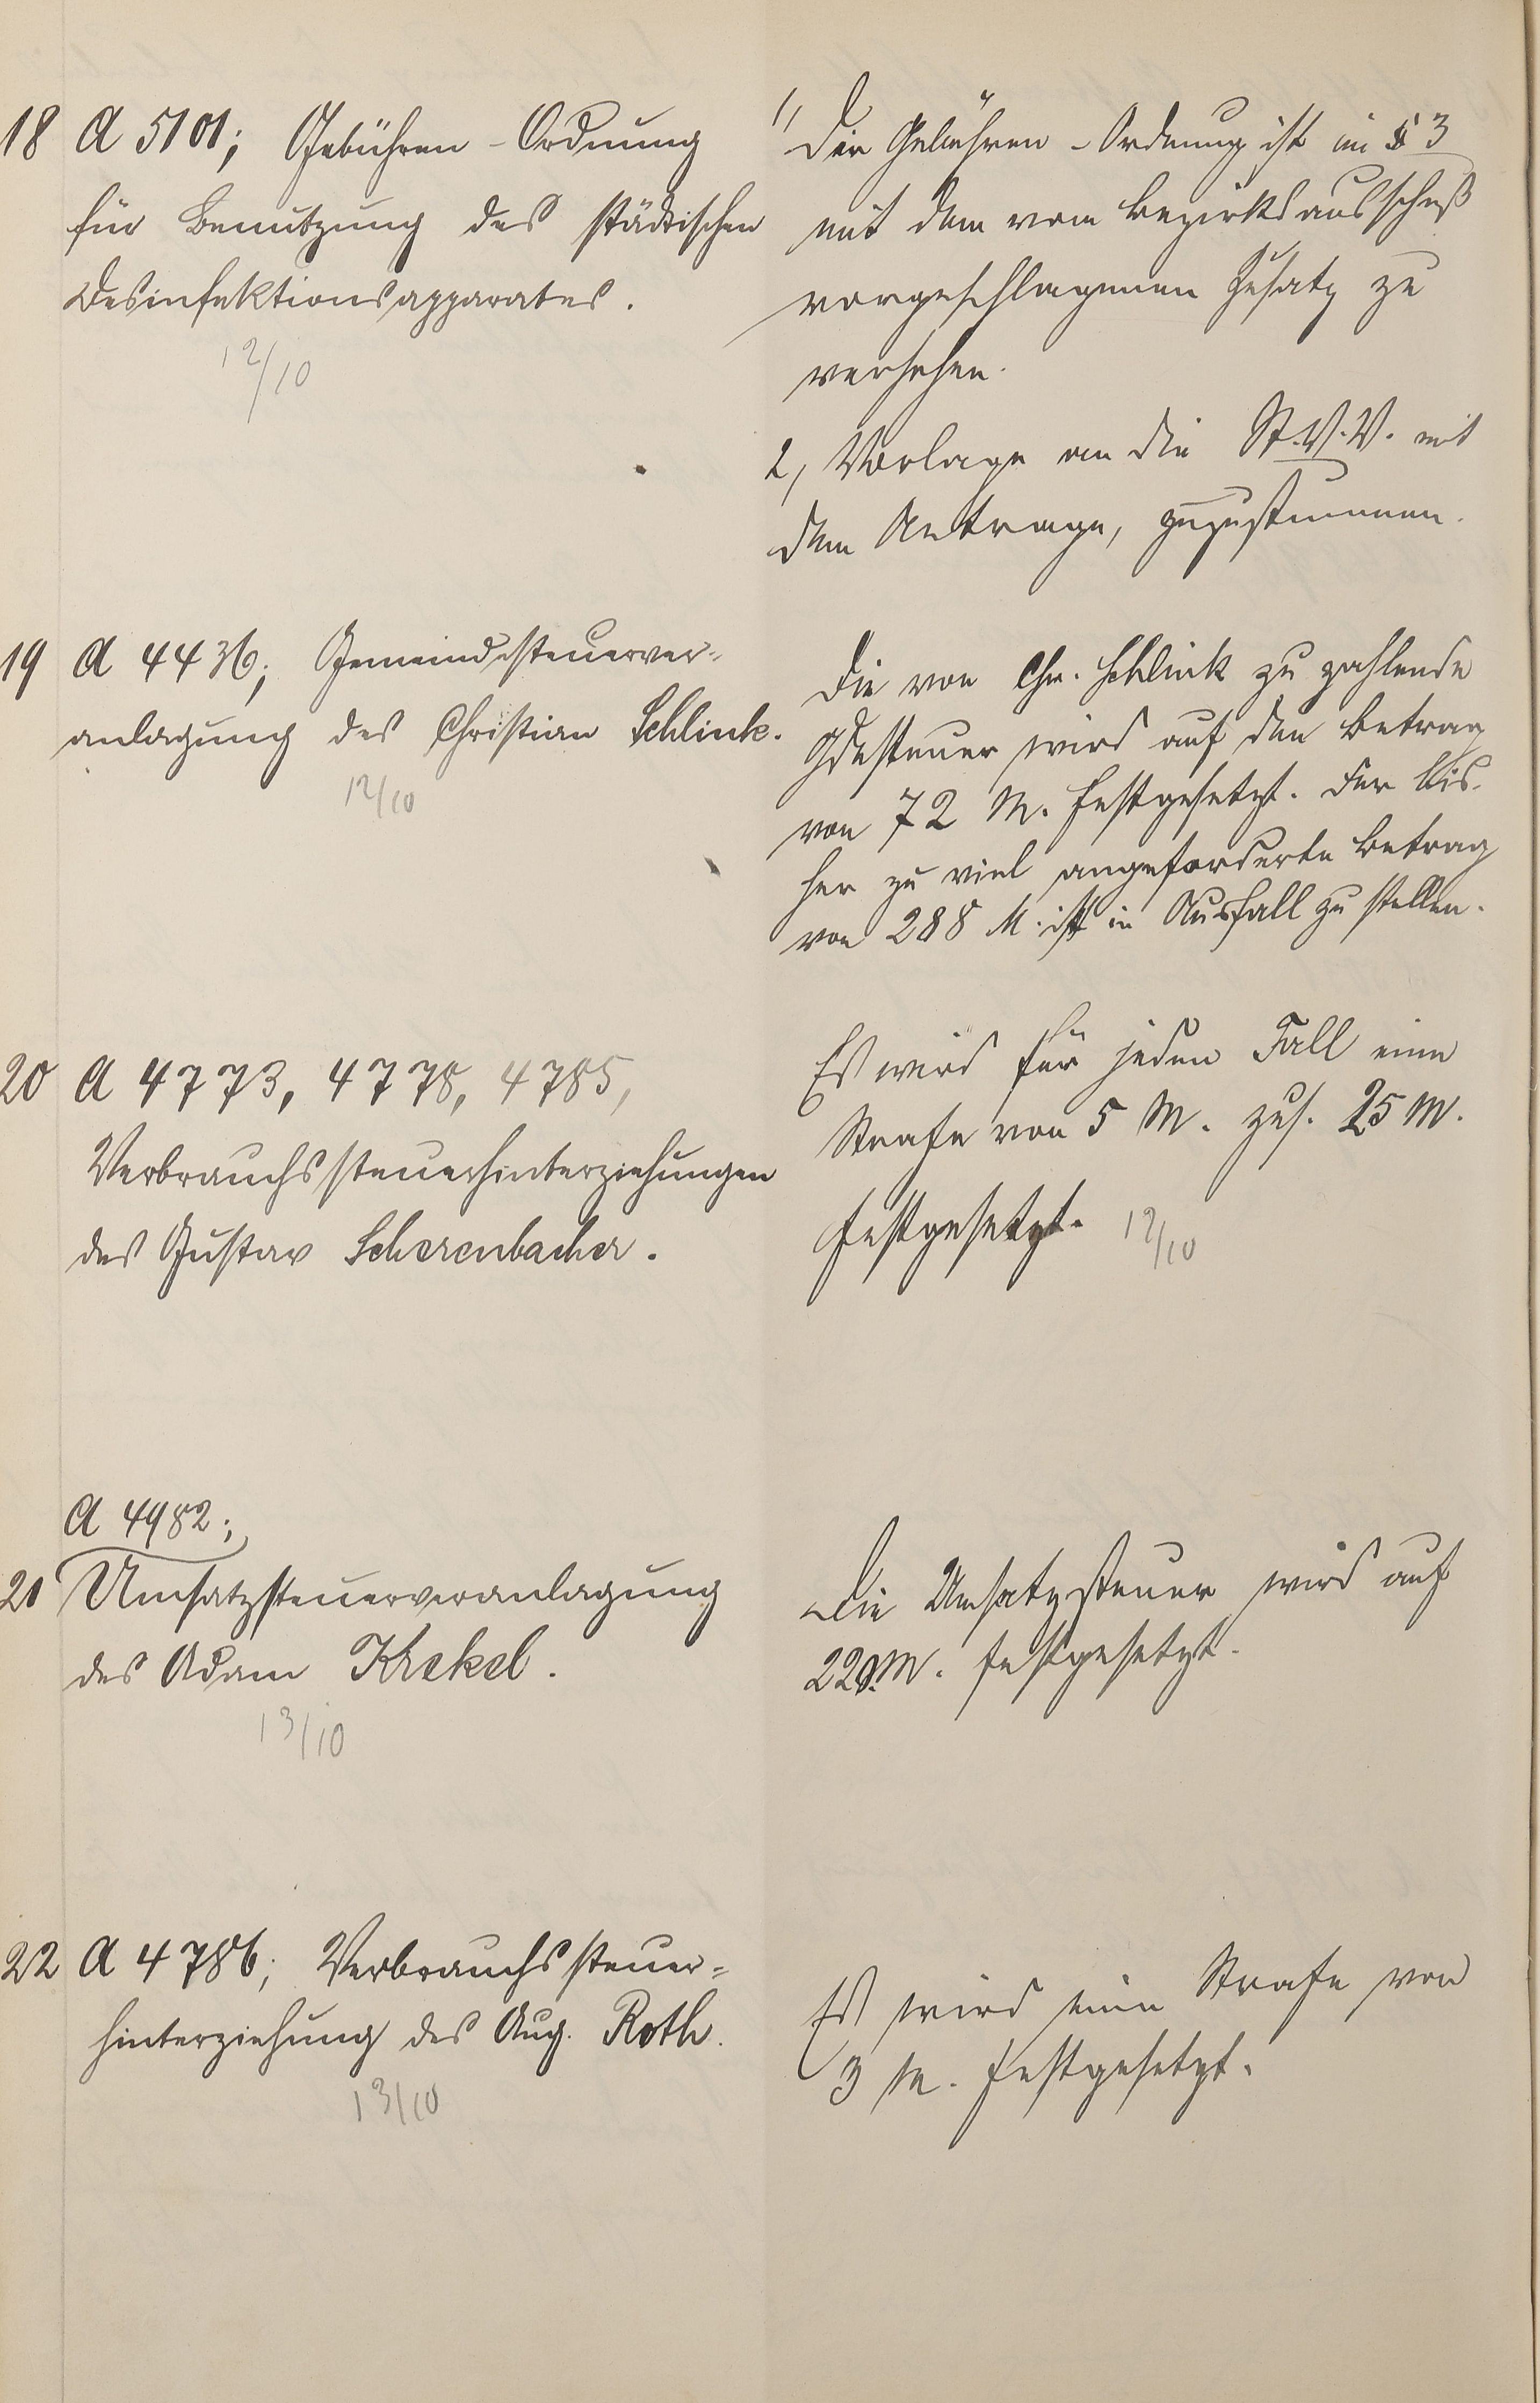 18 A 5101; Gebühren-Ordnung
für Benutzung des städtischen
Desinfektionsapparates.
12/10
1, Die Gebühren-Ordnung ist im § 3
mit dem vom Bezirksausschuß
vorgeschlagenen Zusatz zu
versehen.
2, Vorlage an die St.V.V. mit
dem Antrage, zuzustimmen.
19 A 4436; Gemeindesteuerver-
anlagung des Christian Schlink.
12/10
Die von Chr. Schlink zu zahlende
Gdesteuer wird auf den Betrag
von 72 M. festgesetzt. Der bis-
her zu viel angeforderte Betrag
von 288 M. ist in Ausfall zu stellen.
20 A 4773, 4778, 4785,
Verbrauchssteuerhinterziehungen
des Gustav Scherenbacher.
Es wird für jeden Fall eine
Strafe von 5 M. zus. 25 M.
festgesetzt. 12/10
A 4982;
21 Umsatzsteuerveranlagung
des Adam Krekel.
13/10
Die Umsatzsteuer wird auf
220 M. festgesetzt.
22 A 4786; Verbrauchssteuer-
hinterziehung des Aug. Roth.
13/10
Es wird eine Strafe von
3 M. festgesetzt.